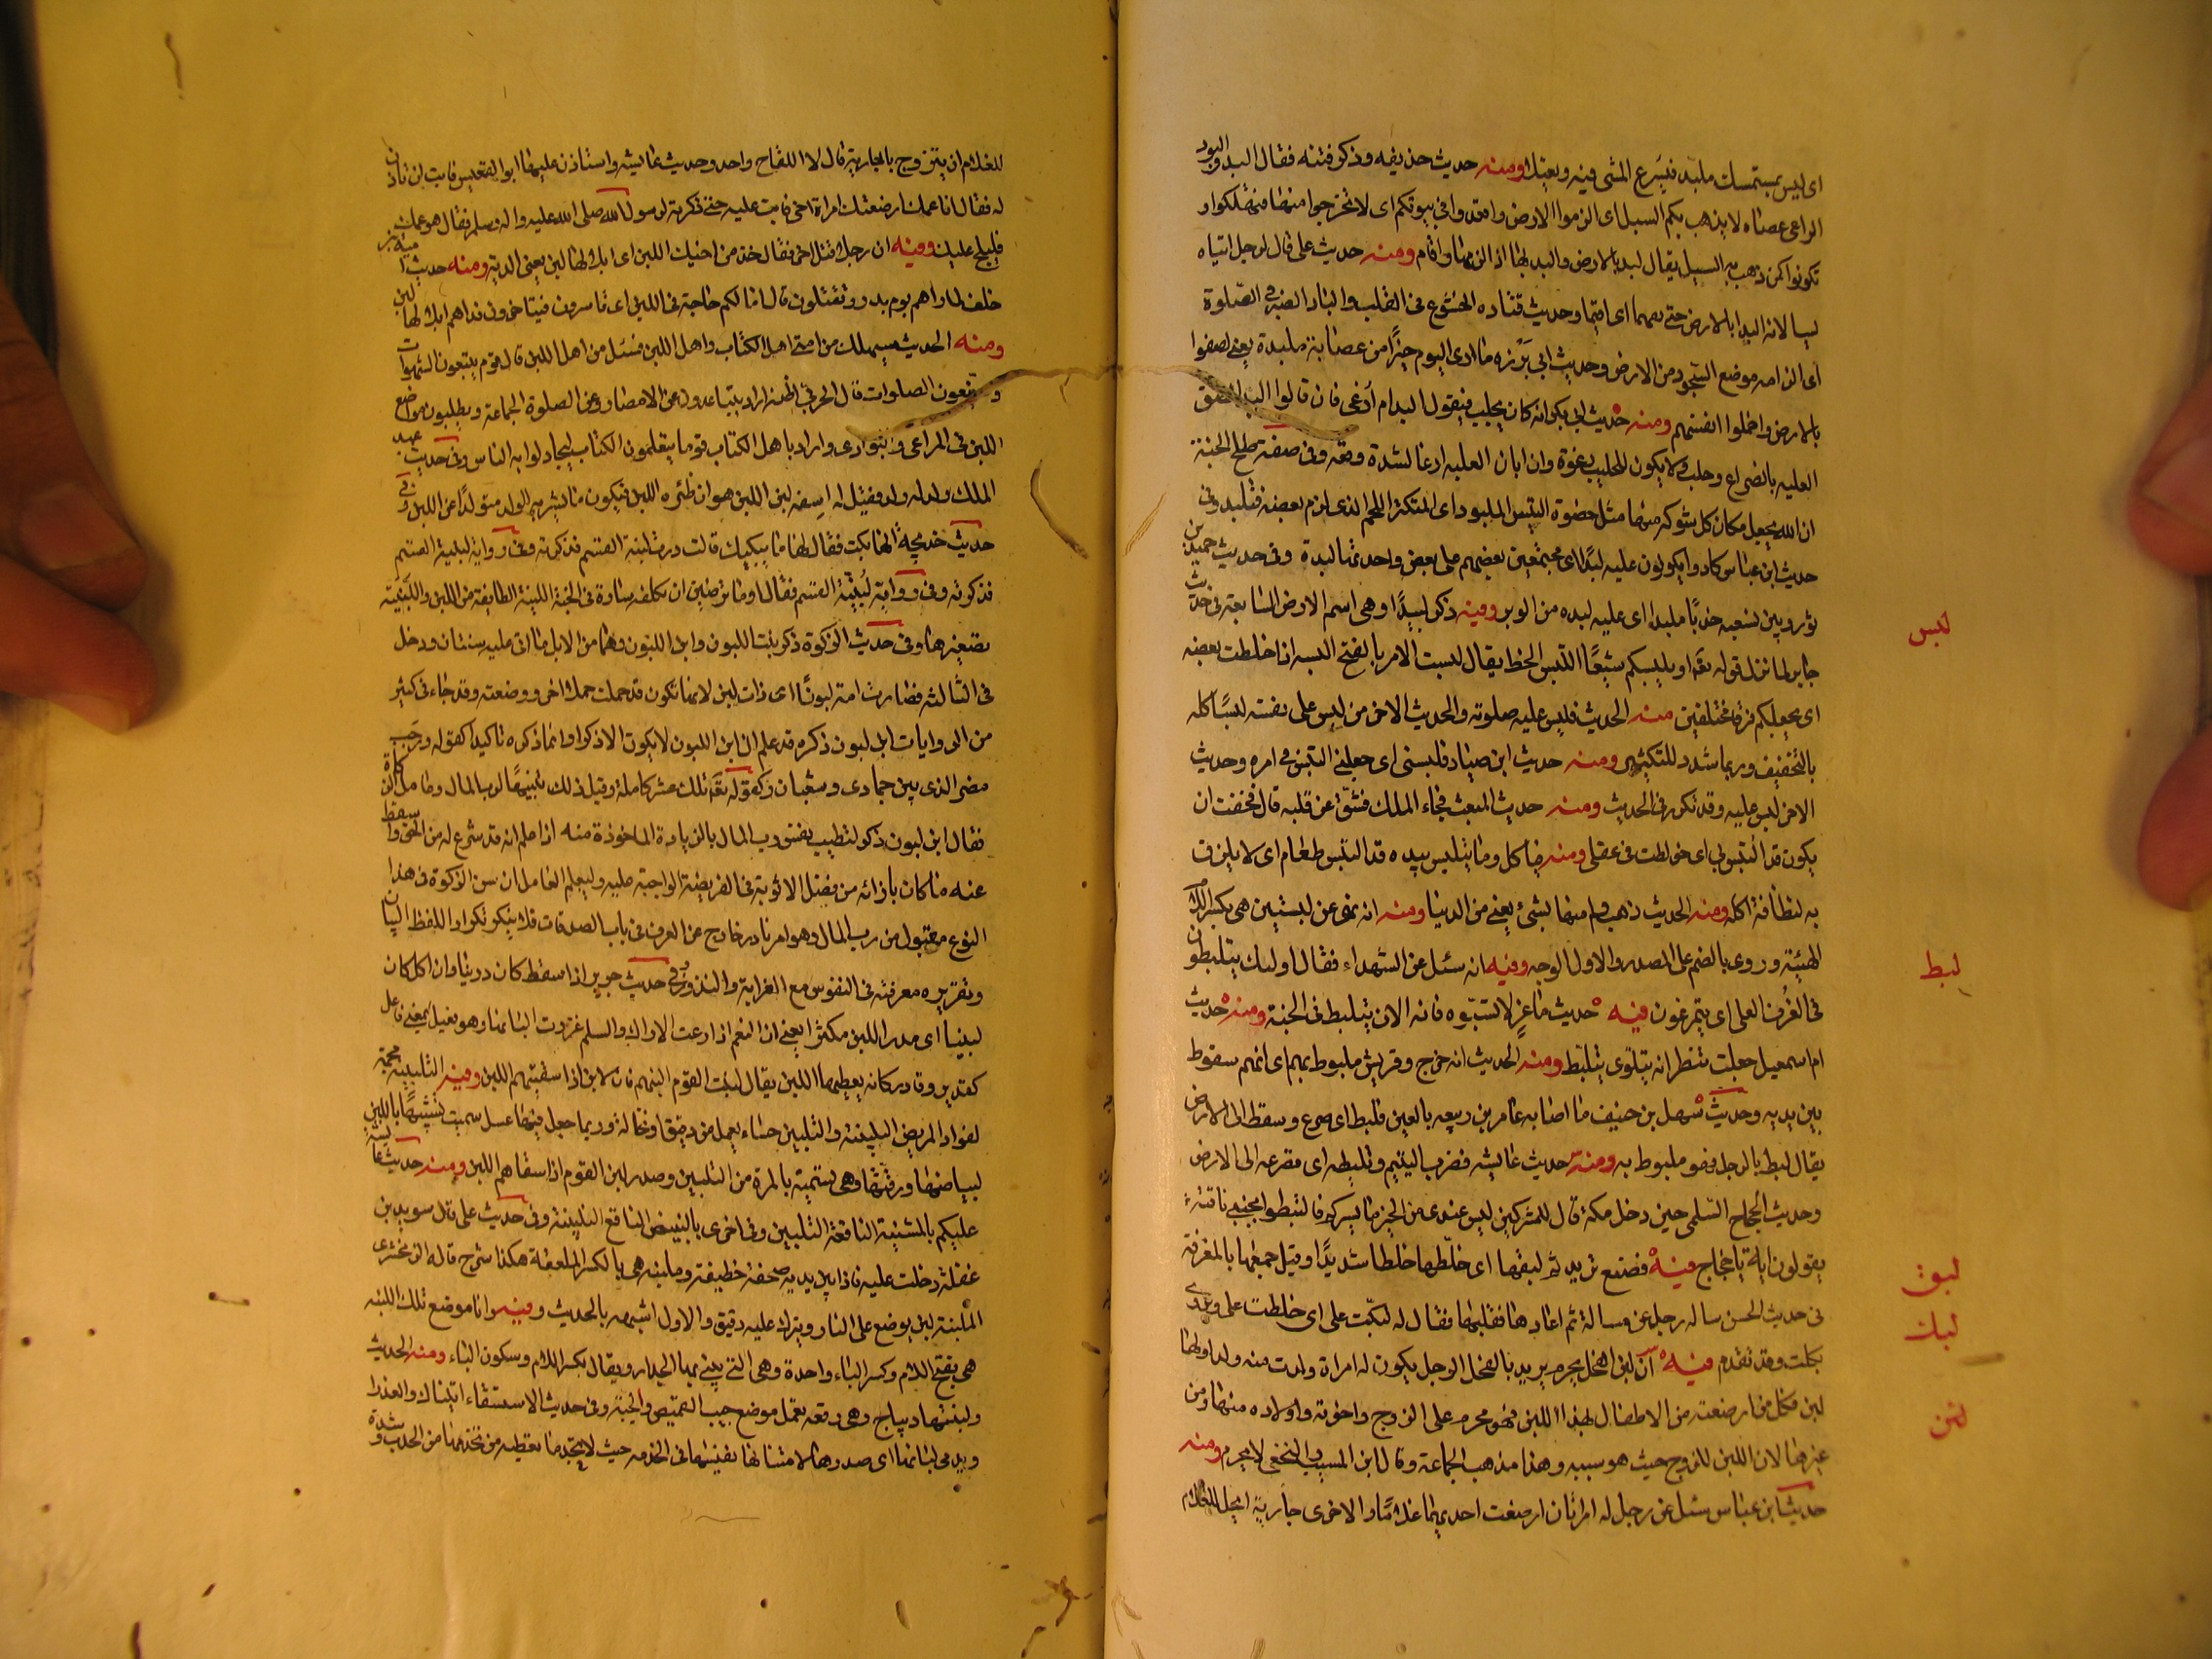 اى ليس بمستمسك ملبد فيسرع المشى فيه ويعتلى ومنه حديث حذيفه وذكر فتنه فقال البدوا لبود
الراعى عصاه لا يذهب بكم السيل اى الزموا الارض واقعدوا فى بيوتكم اى لا تخرجوا منها فتهلكوا و
تكونوا كمن ذهب به السيل يقال لبد بالارض والبد بها اذا لزمها واقام ومنه حديث على قال لرجل اتياه
يسالانه البدا بالارض حتى تفهما اى اقيما وحديث قتاده الخشوع فى القلب والباد البصر فى الصلوة
اى الزامه موضع السجود من الارض وحديث ابى برزه ما ارى اليوم خيرًا من عصابة ملبدة يعنى لصقوا
بالارض واخملوا انفسهم ومنه حديث ابى بكر انه كان يحلب فيقول البد ام ارغى فان قالوا البد الصق
العلبه بالضرع وحلب فلا يكون للحليب رغوة وان ابان العلبه ارغا لشدة وقعه وفى صفة طلح الجنة
ان الله يجعل مكان كل شوكة منها مثل خصوة التيس الملبود اى المكتنز اللحم الذى لزم بعضه فتلبد وفى
حديث ابن عباس كادوا يكونون عليه لبدًا اى مجتمعين بعضهم على بعض واحدتها لبدة وفى حديث حميد بن
ثور وبين نسعيه خدبًا ملبدا اى عليه لبده من الوبر وفيه ذكر لبيدًا وهى اسم الارض السابعة فى حديث
جابر لما نزل قوله تعا او يلبسكم شيعًا اللبس الخلط يقال لبست الامر بالفتح البسه اذا خلطت بعضه
اى يجعلكم فرقا مختلفين منه الحديث فلبس عليه صلوته والحديث الاخر من لبس على نفسه لبسًا كله
بالتخفيف وربما شدد للتكثير ومنه حديث ابن صياد فلبسنى اى جعلنى التبس فى امره وحديث
الاخر لبس عليه وقد تكرر فى الحديث ومنه حديث المبعث فجاء الملك فشق عن قلبه قال فخفت ان
يكون قد التبس بى اى خولطت فى عقلى ومنه فياكل وما يتلبس بيده قد التبس طعام اى لا يلزق
به لنظافة اكله ومنه الحديث ذهب ولم منها بشئ يعنى من الدنيا ومنه انه نهى عن لبستين هى بكسر اللام
الهيئة وروى بالضم على المصدر والاول الوجه وفيه انه سئل عن الشهداء فقال اولئك يتلبطون
فى الغرف العلى اى يتمرغون فيه حديث ماعز لا تسبوه فانه الان يتلبط فى الجنة ومنه حديث
ام اسمعيل جعلت تنظر انه يتلوى يتلبط ومنه الحديث انه خرج وقريش ملبوط بهم اى انهم سقوط
بين يديه وحديث سهل بن حنيف ما اصابه عامر بن ربيعه بالعين فلبط اى صرع وسقط الى الارض
يقال لبط بالرجل فهو ملبوط به ومنه حديث عايشه فضرب اليتيم وتلبطه اى مصرعه الى الارض
وحديث الحجاج السلمى حين دخل مكة قال للمشركين ليس عندى من الخبر ما يسركم فالتبطوا بجنبى ناقته
يقولون ايه يا حجاج فيه فصنع ثريد ثم لبقها اى خلطها خلطا شديدًا وقيل جمعها بالمغرفة
فى حديث الحسن ساله رجل عن مسالة ثم اعادها فقلبها فقال له لبكت على اى خلطت على ويروى
بكلت وقد تقدم فيه ان لبن الفحل يحرم يريد بالفحل الرجل يكون له امراة ولدت منه ولدا ولها
لبن فكل من ارضعته من الاطفال بهذا اللبن فهو محرم على الزوج واخوته واولاده منها ومن
غيرها لان اللبن للزوج حيث هو سببه وهذا مذهب الجماعة وقال ابن المسيب والنخعى لا يحرم ومنه
حديث ابن عباس سئل عن رجل له امراتان ارضعت احديهما غلامًا والاخرى جارية ايحل للغلام
لبس
لبط
لبق
لبك
لبن
للغلام ان يتزوج بالجارية قال لا اللقاح واحد وحديث عايشه واستاذن عليها ابو القعيس فابت ان تاذن
له فقال انا عمك ارضعتك امراة اخى فابت عليه حتى ذكرته لرسول الله صلى الله عليه واله وسلم فقال هو عمك
فليلج عليك وفيه ان رجلا قتل اخر فقال خذ من اخيك اللبن اى ابلا لها لبن يعنى الدية ومنه حديث امية بن
خلف لما راهم يوم بدر يقتلون قال اما لكم حاجة فى اللبن اى تاسرون فيتاخرون فداهم ابلا لها لبن
ومنه الحديث سيهلك من امتى اهل الكتاب واهل اللبن فسئل من اهل اللبن قال قوم يتبعون الشهوات
ويضيعون الصلوات قال الحربى اظنه اراد يتباعدون عن الامصار وعن الصلوة الجماعة ويطلبون مواضع
اللبن فى المراعى والبوادى واراد باهل الكتاب قوما يتعلمون الكتاب ليجادلوا به الناس وفى حديث عبد
الملك ولد له ولد فقيل له اسقه لبن اللبن هو ان ظئره اللبن فيكون ما يشربه الولد متولدًا عن اللبن وفى
حديث خديجة انها بكت فقال لها ما يبكيك قالت درت لبنة القسم فذكرته وفى رواية لبينة القسم
فذكرته وفى رواية لبينة القسم فقال اوما ترضين ان تكلفه سارة فى الجنة اللبنة الطايفة من اللبن واللبينة
تصغيرها وفى حديث الزكوة ذكر بنت اللبون وابن اللبون وهما من الابل ما اتى عليه سنتان ودخل
فى الثالثه فصارت امه لبونًا اى ذات لبن لانها تكون قد حملت حملا اخر ووضعته وقد جاء فى كثير
من الروايات ابن لبون ذكره قد علم ان ابن اللبون لا يكون الا ذكرا وانما ذكره تاكيدا كقوله ورجب
مضر الذى بين جمادى وشعبان وكقوله تعا تلك عشرة كاملة وقيل ذلك تنبيهًا لرب المال وعامل الزكاة
فقال ابن لبون ذكر لتطيب نفس رب المال بالزيادة الماخوذة منه اذا علم انه قد شرع له من الحق واسقط
عنه ما كان بازائه من فضل الانوثة فى الفريضة الواجبة عليه وليعلم العامل ان سن الزكوة فى هذا
النوع مقبول من رب المال وهو امر نادر خارج عن العرف فى باب الصدقات فلا ينكر تكرار اللفظ البيان
وتقريره معرفته فى النفوس مع الغرابة والندور وفى حديث جرير اذا سقط كان درينا وان اكل كان
لبينا اى مدر اللبن مكثرا يعنى ان النعم اذا رعت الاراك والسلم غزرت البانها وهو فعيل بمعنى فاعل
كقدير وقادر كانه يعطيها اللبن يقال لبنت القوم البنهم فانا لابن اذا سقيتهم اللبن وفيه التلبينة مجمة
لفواد المريض التلبينة والتلبين حساء يعمل من دقيق او نخالة وربما جعل فيها عسل سميت تشبيهًا باللبن
لبياضها ورقتها وهى تسمية بالمرة من التلبين وصدر لبن القوم اذا سقاهم اللبن ومنه حديث عايشه
عليكم بالمشنية النافعة التلبين وفى اخرى بالبغيض النافع التلبينة وفى حديث على قال سويد بن
غفلة دخلت عليه فاذا بين يديه صحفة خطيفة وملبنه هى بالكسر الملعقة هكذا شرح قاله الزمخشرى
الملبنة لبن يوضع على النار ويترك عليه دقيق والاول اشبه بالحديث وفيه وانا موضع تلك اللبنه
هى بفتح اللام وكسر الباء واحدة وهى التى يبنى بها الجدار ويقال بكسر اللام وسكون الباء ومنه الحديث
ولبنتها ديباج وهى رقعه تعمل موضع جيب القميص والجبة وفى حديث الاستسقاء اتيناك والعذرا
ويدمى لبانها اى صدرها لامتهانها نفسها فى الخدمه حيث لا تجد ما تعطيه من تخدمها من الجدب وشدة